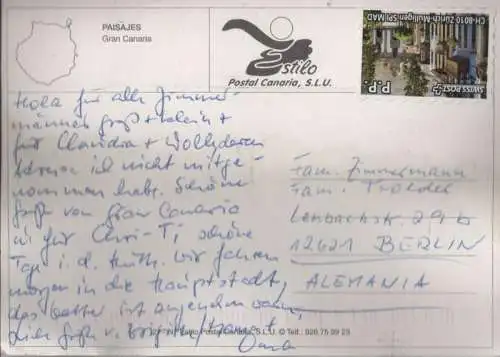 PAISAJES
Gran Canaria
Estilo
Postal Canaria, S.L.U.
SWISS POST
P.P.
CH-8010 Zürich-Mülligen SPI MAD
Hola für alle Zimmer-
männer groß + klein +
für Claudia +
ich nicht mitge-
nommen habe. Schöne
Grüße von Gran Canaria
für schöne
Tag i. d. wir fahren
morgen in die Hauptstadt,
das Wetter ist angenehm warm,
Liebe Grüße v.
Fam. Zimmermann
Fam.
Lenbachstr. 29 b
12621 BERLIN
ALEMANIA
Postal Canaria, S.L.U. © Telf.: 928 75 99 23